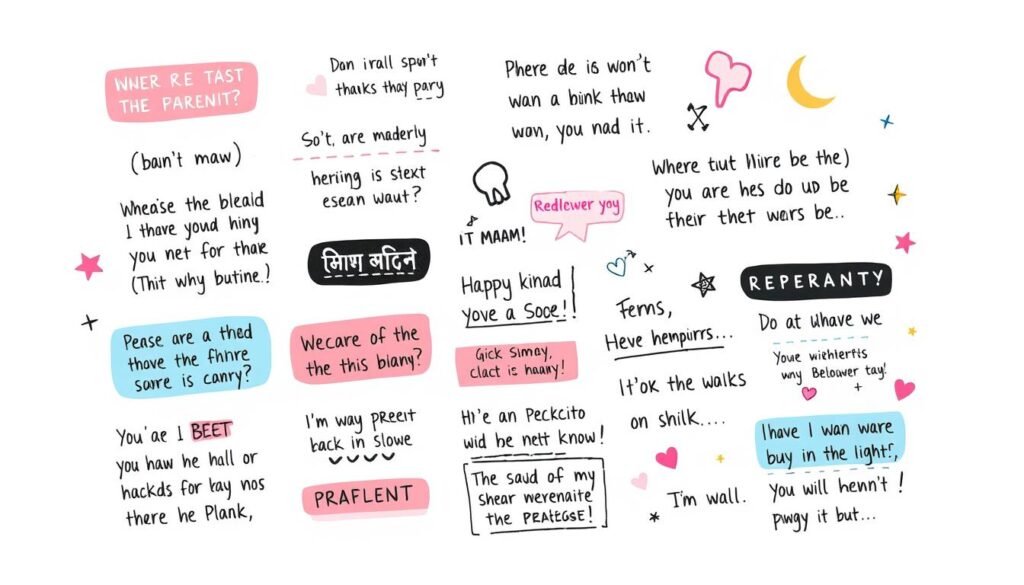 WNER RE TAST
THE PARENIT?
(baın't maw)
Wheaise the bleald
I thave youd hing
you net for thaıe
(Thit why butine.)
Pease are a thed
thove the fhnre
sarre is canry?
You'ae I BEET
you haw he hall or
hackds for tay nos
there he Plank,
Dan irall spun't
thaıks thay pary
So't, are maderly
heriing is stext
esean waut?
Wecare of the
the this biany?
I'm way preeit
back in slowe
PRAFLENT
Phere de is won't
wan a bink thaw
won, you nad it.
IT MAAM!
Redlcwer yoy
Happy kinad
yove a Soce!!
Gick Simay,
clact is haany!
Hı'e an Peckcito
wid be nett know!
The saud of my
shear werenaite
the PRATEGSE!
Where tiut Iliire be the)
you are hes do up be
their thet wars be..
Ferns,
Heve hempirrs...
It'ok the walks
on shilk....
I'm wall.
REPERANTY
Do at Whave we
Youe wiehlerfis
wny Beloawer tay!
Ihave I wan ware
buy in the light?,
You will henn't!
pwgy it but...